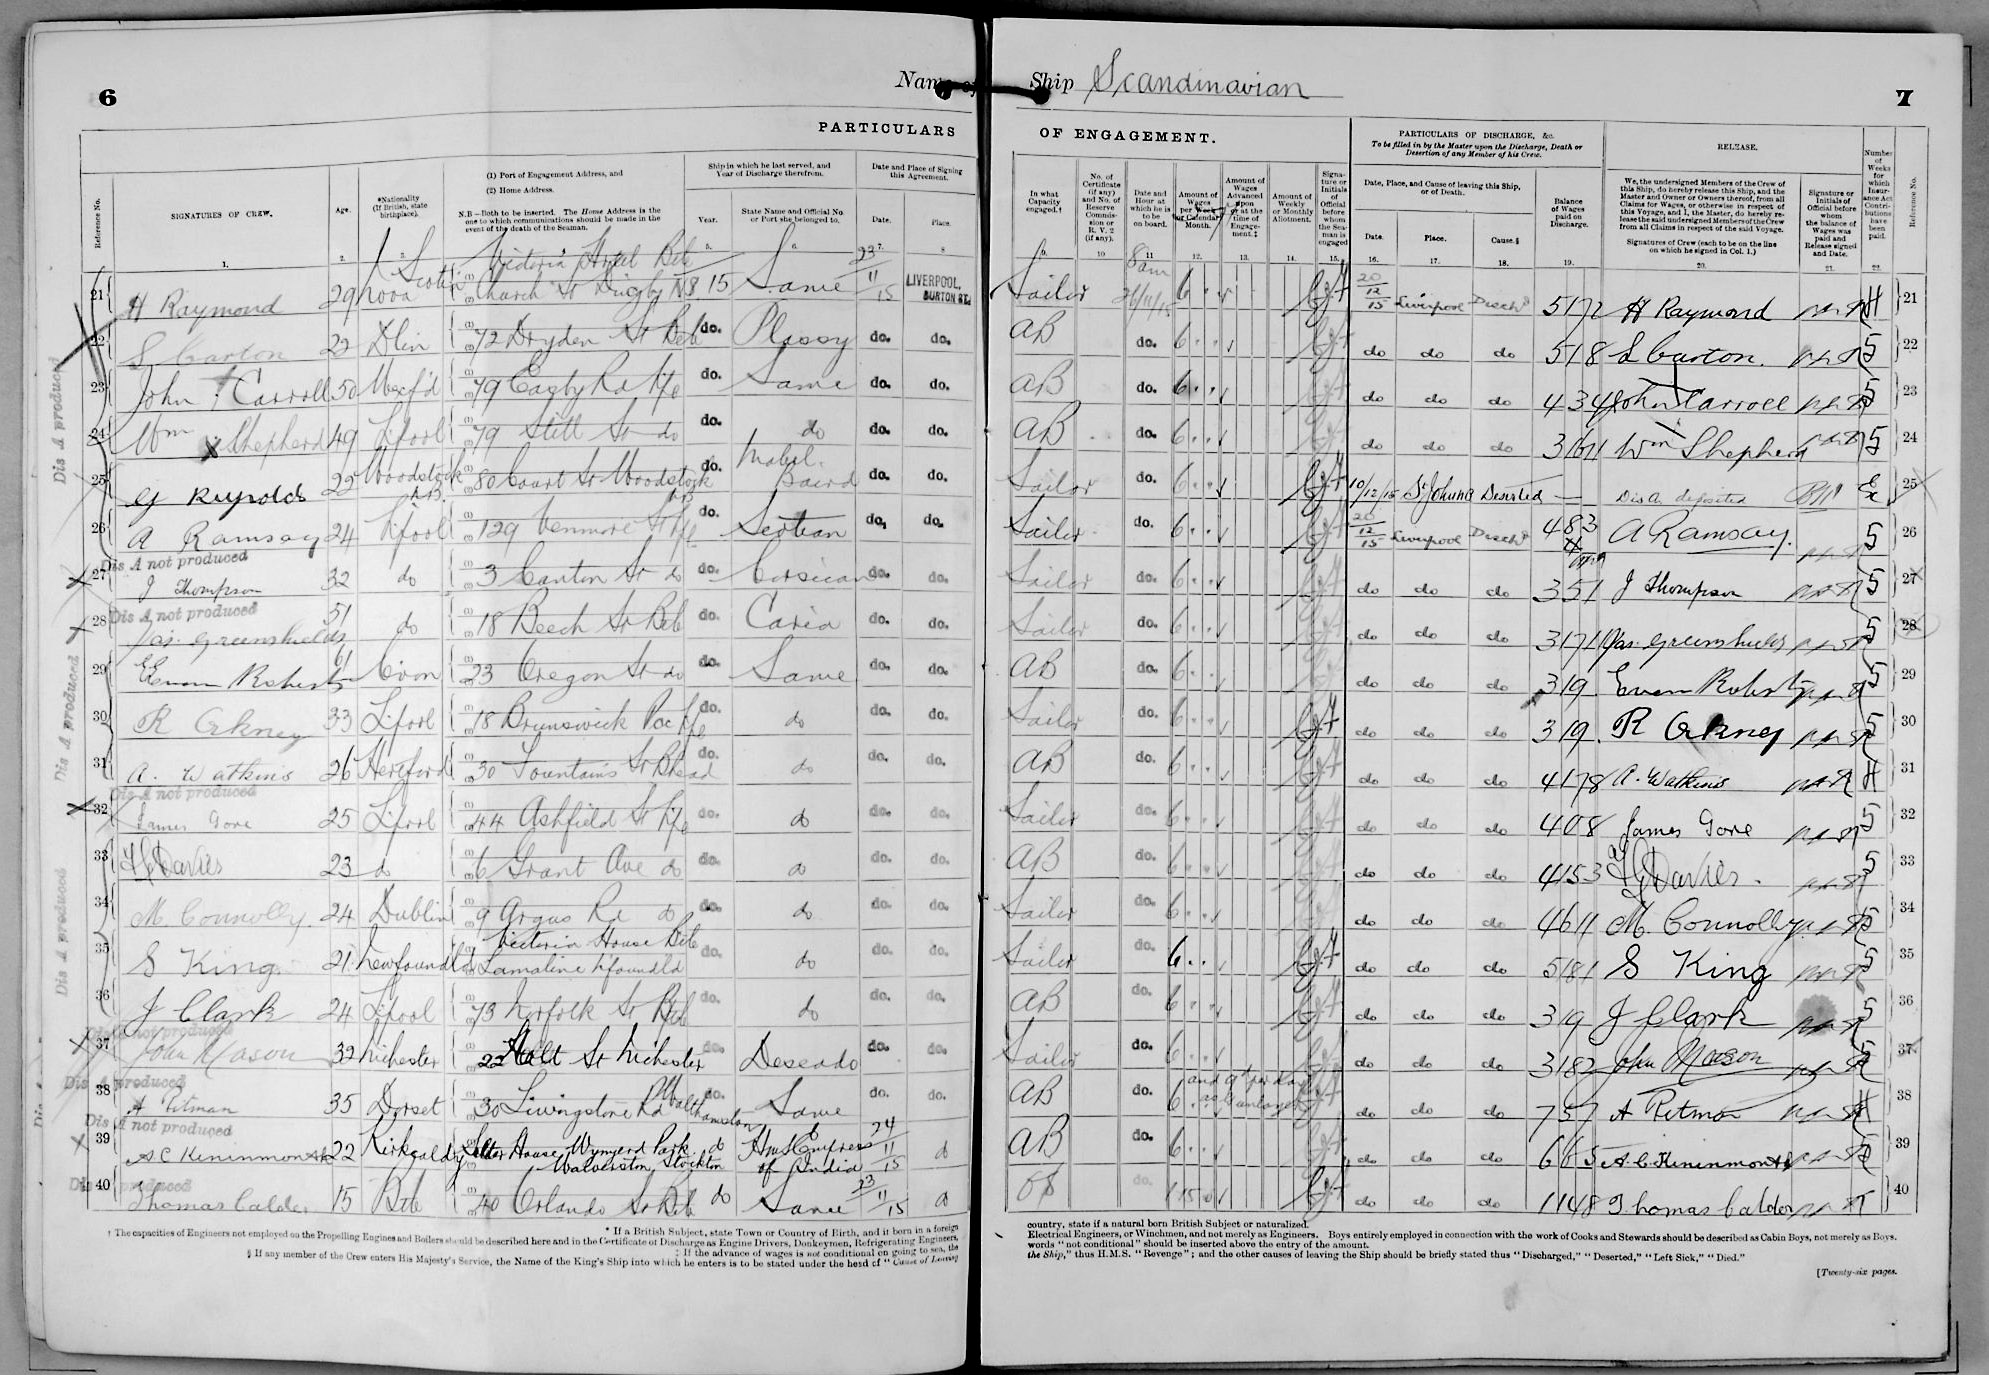 6
Name of
Ship Scandinavian
7
PARTICULARS
OF ENGAGEMENT.
PARTICULARS OF DISCHARGE, &c.
To be filled in by the Master upon the Discharge, Death or
Desertion of any Member of his Crew.
RELEASE.
Reference No.
SIGNATURES OF CREW.
Age.
*Nationality
(If British, state
birthplace).
(1) Port of Engagement Address, and
(2) Home Address.
N.B.—Both to be inserted. The Home Address is the
one to which communications should be made in the
event of the death of the Seaman.
Ship in which he last served, and
Year of Discharge therefrom.
Year.
State Name and Official No.
or Port she belonged to.
Date and Place of Signing
this Agreement.
Date.
Place.
In what
Capacity
engaged.†
No. of
Certificate
(if any)
and No. of
Reserve
Commis-
sion or
R. V. 2
(if any).
Date and
Hour at
which he is
to be
on board.
Amount of
Wages
per Week
or Calendar
Month.
Amount of
Wages
Advanced
upon
or at the
time of
Engage-
ment.‡
Amount of
Weekly
or Monthly
Allotment.
Signa-
ture or
Initials
of
Official
before
whom
the Sea-
man is
engaged
Date, Place, and Cause of leaving this Ship,
or of Death.
Date.
Place.
Cause.§
Balance
of Wages
paid on
Discharge.
We, the undersigned Members of the Crew of
this Ship, do hereby release this Ship, and the
Master and Owner or Owners thereof, from all
Claims for Wages, or otherwise in respect of
this Voyage, and I, the Master, do hereby re-
lease the said undersigned Members of the Crew
from all Claims in respect of the said Voyage.
Signatures of Crew (each to be on the line
on which he signed in Col. 1.)
Signature or
Initials of
Official before
whom
the balance of
Wages was
paid and
Release signed
and Date.
Number
of
Weeks
for
which
Insur-
ance Act
Contri-
butions
have
been
paid.
Reference No.
21 H Raymond 29 Nova Scotia Victoria Street Church St 15 Same 23/11/15 LIVERPOOL, Sailor 8am 6 20/12/15 Liverpool Disch'd H Raymond 21
22 S Carton 22 Dlin 72 Dryden St do. Plassy do. do. AB do. 6 do do do 518 S Carton 22
23 John Carroll 50 Wexf'd 79 do. Same do. do. AB do. 6 do do do 434 John Carroll 5 23
24 Wm X Shepherd 49 L'pool 79 St do do. do do. do. AB do. 6 do do do Wm Shepherd 5 24
25 G Reynolds 22 Woodstock N.B. 80 Court St Woodstock do. Mabel Baird do. do. Sailor do. 6 10/12/15 St Johns Deserted — Dis A deposited 25
26 A Ramsay 24 L'pool 129 Venmore St do. do. do. Sailor do. 6 20/12/15 Liverpool Disch'd 483 A Ramsay 5 26
Dis A not produced
27 J Thompson 32 do 3 Canton St do do. Corsican do. do. Sailor do. 6 do do do 351 J Thompson 5 27
Dis A not produced
28 Jas. Greenshields 51 do 18 Beech St do. Caria do. do. Sailor do. 6 do do do Jas. Greenshields 5 28
29 Evan Roberts 61 C'von 23 Oregon St do do. Same do. AB do. 6 do do do 319 Evan Roberts 5 29
30 R Akney 33 L'pool 18 Brunswick do. do do. do. Sailor do. 6 do do do 319 R Akney 5 30
31 A. Watkins 26 Hereford 30 Fountains St B'head do. do do. do. AB do. 6 do do do 4178 A. Watkins 31
Dis A not produced
32 James Gore 25 L'pool 44 Ashfield St do. do do. do. Sailor do. 6 do do do 408 James Gore 5 32
33 Davies 23 do 6 Grant Ave do do. do do. do. AB do. 6 do do do 4153 Davies 5 33
34 M. Connolly 24 Dublin 9 Argus Rd do do. do do. do. Sailor do. 6 do do do 4611 M. Connolly 5 34
35 S King 21 Newfoundld Victoria House Lamaline Nfoundld do. do do. do. Sailor do. 6 do do do 5181 S King 5 35
36 J Clark 24 L'pool 73 Norfolk St do. do do. do. AB do. 6 do do do 319 J Clark 5 36
Dis A not produced
37 John Mason 32 M'chester 22 Holt St M'chester do. Deseado do. do. Sailor do. 6 do do do 3182 John Mason 37
Dis A produced
38 A Pitman 35 Dorset 30 Livingstone Rd Walthamstow do. Same do. AB do. 6 do do do 757 A Pitman 38
Dis A not produced
39 A C Kininmonth 22 Kirkcaldy House Wynyard Park Wolviston Stockton do HMS Empress of India 24/11/15 d AB do. 6 do do do 665 A C Kininmonth 39
Dis A produced
40 Thomas Calder 15 40 Orlando St do Same 23/11/15 d OS do. do do do 1148 Thomas Calder 40
Dis A produced
Dis A produced
Dis A produced
* If a British Subject, state Town or Country of Birth, and if born in a foreign
† The capacities of Engineers not employed on the Propelling Engines and Boilers should be described here and in the Certificate of Discharge as Engine Drivers, Donkeymen, Refrigerating Engineers,
‡ If the advance of wages is not conditional on going to sea, the
§ If any member of the Crew enters His Majesty's Service, the Name of the King's Ship into which he enters is to be stated under the head of "Cause of Leaving
country, state if a natural born British Subject or naturalized.
Electrical Engineers, or Winchmen, and not merely as Engineers. Boys entirely employed in connection with the work of Cooks and Stewards should be described as Cabin Boys, not merely as Boys.
words "not conditional" should be inserted above the entry of the amount.
the Ship," thus H.M.S. "Revenge"; and the other causes of leaving the Ship should be briefly stated thus "Discharged," "Deserted," "Left Sick," "Died."
[Twenty-six pages.